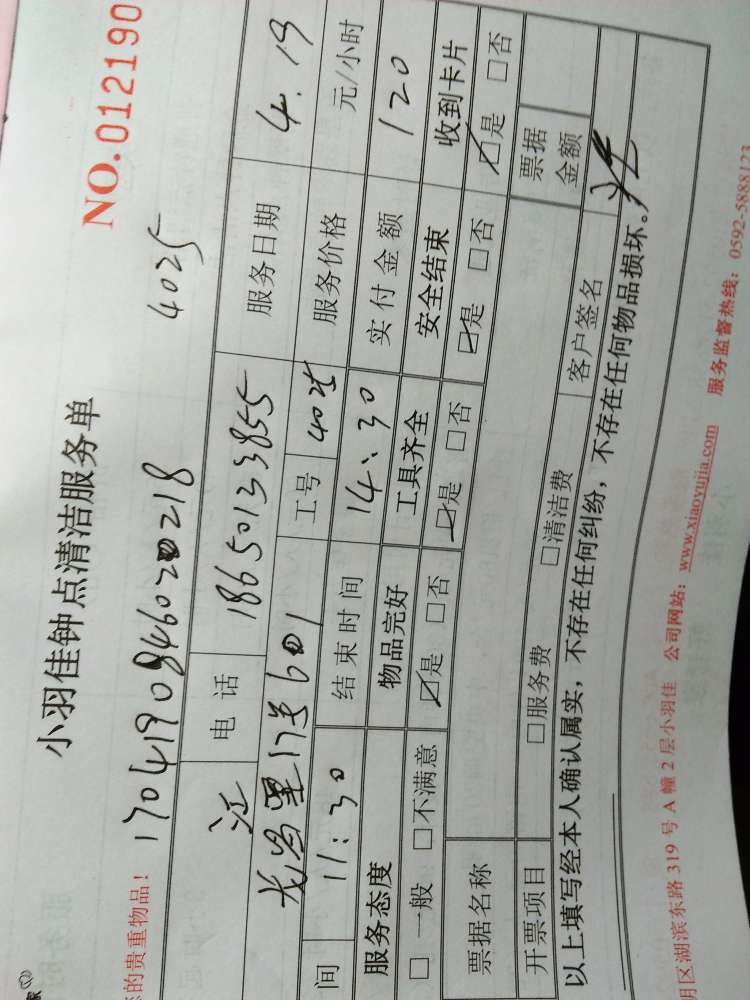 小羽佳钟点清洁服务单
NO.0121190
的贵重物品! 17041908460200218 4025
江 电话 18650133855 服务日期 4.19
17号601 工号 4025 服务价格 元/小时
间 11:30 结束时间 14:30 实付金额 120
服务态度 物品完好 工具齐全 安全结束 收到卡片
□ 一般 □不满意 ☑是 □否 ☑是 □否 ☑是 □否 ☑是 □否
票据名称 票据金额
开票项目 □服务费 □清洁费 客户签名
以上填写经本人确认属实,不存在任何纠纷,不存在任何物品损坏。
明区湖滨东路 319 号 A 幢 2 层小羽佳 公司网站: www.xiaoyujia.com 服务监督热线: 0592-5888123